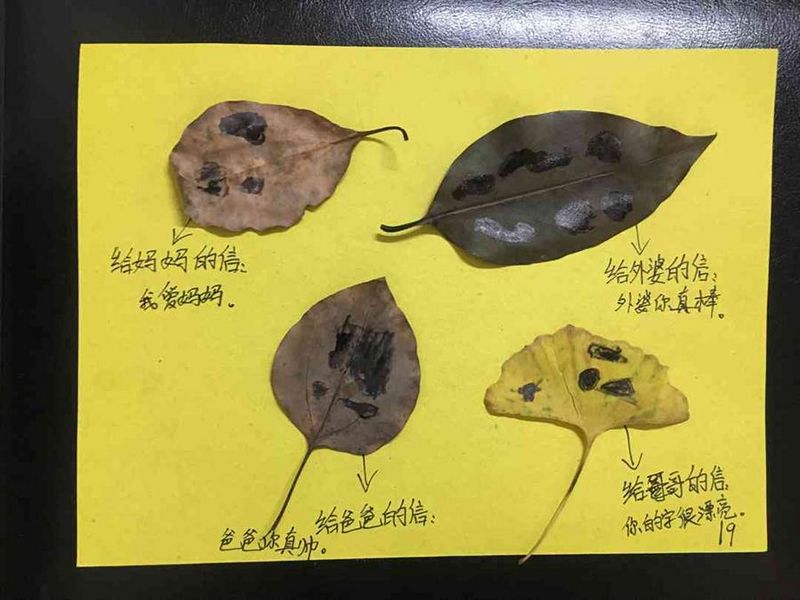 给妈妈的信:
我爱妈妈。
给外婆的信:
外婆你真棒。
给爸爸的信:
爸爸你真帅。
给哥哥的信:
你的字很漂亮。
19